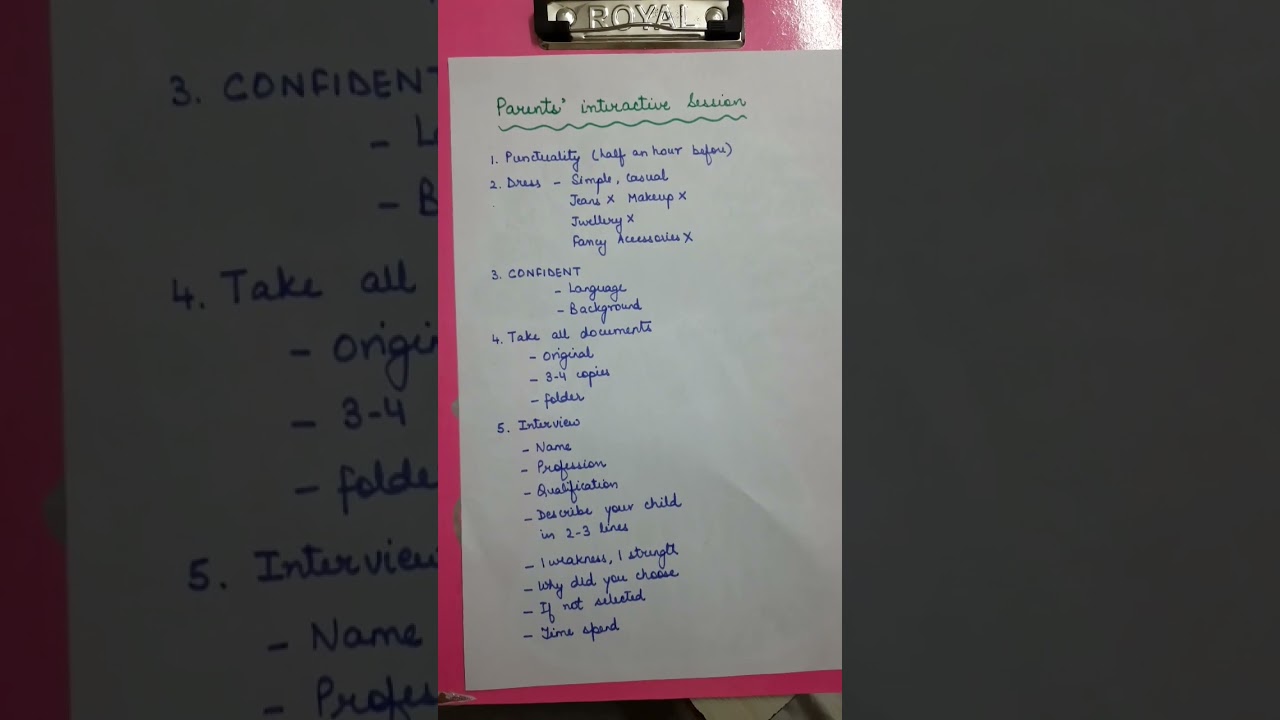 ROYAL
Parents' interactive Session
1. Punctuality (half an hour before)
2. Dress - Simple, casual
Jeans x Makeup x
Jwellery x
Fancy Accessories X
3. CONFIDENT
- Language
- Background
4. Take all documents
- original
- 3-4 copies
- folder
5. Interview
- Name
- Profession
- Qualification
- Describe your child
in 2-3 lines
- 1 weakness, 1 strength
- Why did you choose
- If not selected
- Time spend
3. CONFIDENT
4. Take all
- origin
- 3-4
- folder
5. Interview
- Name
- Profes